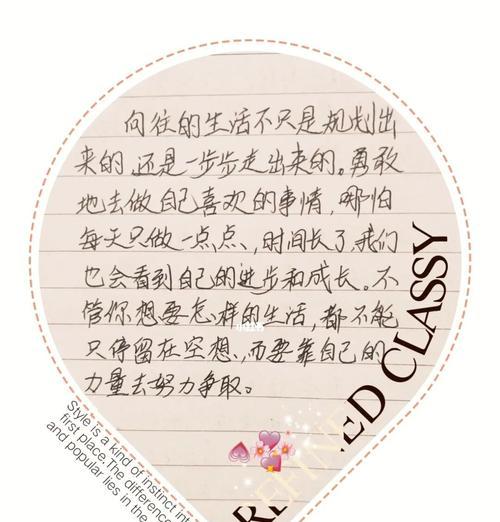 向往的生活不只是规划出
来的,还是一步步走出来的。勇敢
地去做自己喜欢的事情,哪怕
每天只做一点点,时间长了,我们
也会看到自己的进步和成长。不
管你想要怎样的生活,都不能
只停留在空想,而要靠自己的
力量去努力争取。
小红书
REFINED CLASSY
Style is a kind of instinct int
first place.The difference
and popular lies in the